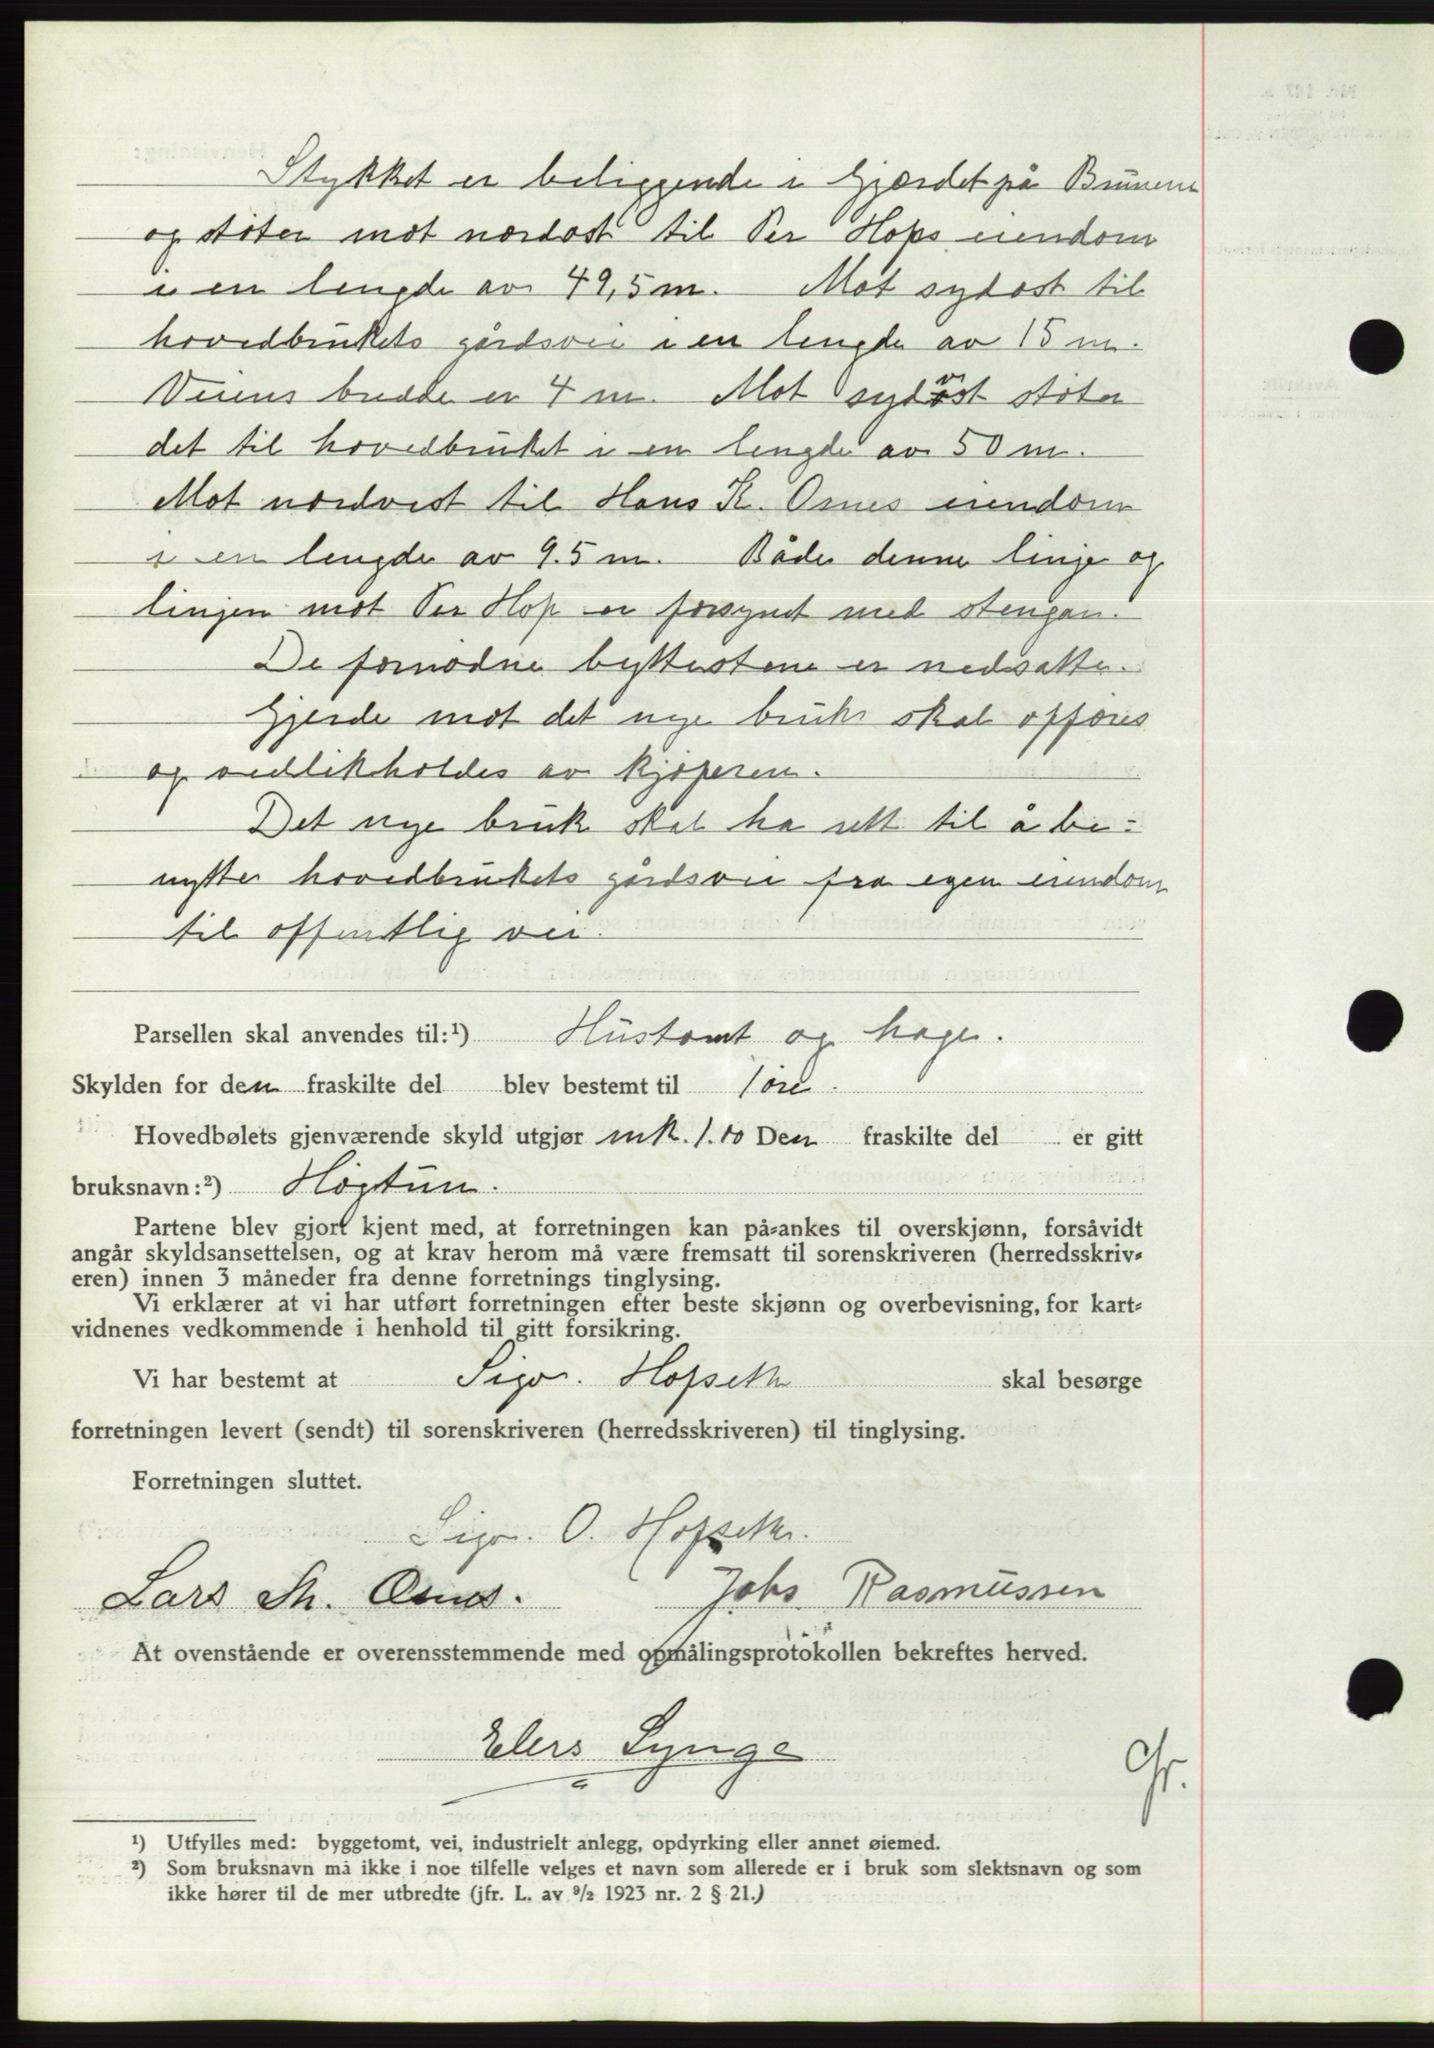 Stykket er beliggende i Gjærdet på Brunene
og støter mot nordøst til Per Hops eiendom
i en lengde av 49,5 m. Mot sydøst til
hovedbrukets gårdsvei i en lengde av 15 m.
Veiens bredde er 4 m. Mot sydvest støter
det til hovedbruket i en lengde av 50 m.
Mot nordvest til Hans K. Osnes eiendom
i en lengde av 9.5 m. Både denne linje og
linjen mot Per Hop er forsynet med stengar.
De fornødne byttestene er nedsatte.
Gjerde mot det nye bruk skal opføres
og vedlikholdes av kjøperen.
Det nye bruk skal ha rett til å be-
nytte hovedbrukets gårdsvei fra egen eiendom
til offentlig vei.
Parsellen skal anvendes til:¹) Hustomt og hage.
Skylden for den fraskilte del blev bestemt til 1 øre.
Hovedbølets gjenværende skyld utgjør mk. 1.10 Den fraskilte del er gitt
bruksnavn:²) Högtun.
Partene blev gjort kjent med, at forretningen kan på-ankes til overskjønn, forsåvidt
angår skyldsansettelsen, og at krav herom må være fremsatt til sorenskriveren (herredsskriv-
eren) innen 3 måneder fra denne forretnings tinglysing.
Vi erklærer at vi har utført forretningen efter beste skjønn og overbevisning, for kart-
vidnenes vedkommende i henhold til gitt forsikring.
Vi har bestemt at Sigv. Hofseth skal besørge
forretningen levert (sendt) til sorenskriveren (herredsskriveren) til tinglysing.
Forretningen sluttet.
Sigv. O. Hofseth.
Lars Th. Osnes. Johs. Rasmussen
At ovenstående er overensstemmende med opmålingsprotokollen bekreftes herved.
Elers Synge
Gr.
¹) Utfylles med: byggetomt, vei, industrielt anlegg, opdyrking eller annet øiemed.
²) Som bruksnavn må ikke i noe tilfelle velges et navn som allerede er i bruk som slektsnavn og som
ikke hører til de mer utbredte (jfr. L. av 9/2 1923 nr. 2 § 21.)